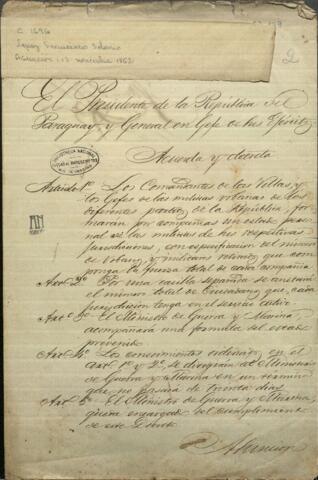 C. 1696
Lopez Francisco Solano
Asuncion, 13 noviembre 1862
2
El Presidente de la República del
Paraguay y General en Gefe de sus Egércitos
Acuerda y decreta
Articulo 1º Los Comandantes de las Villas y
los Gefes de las milicias urbanas de los
diferentes partidos de la República, for
marán por compañias un estado
nal de las milicias de sus respectivas
jurisdicciones, con especificacion del número
de Urbanos y milicianos que com
ponga la fuerza total de cada compañia
Art. 2º Por una casilla separada se anotará
el número total de Ciudadanos que cada
jurisdiccion tenga en el servicio activo
Art. 3º El Ministro de Guerra y Marina
acompañará una formula del estado
prevenido
Art. 4º Los conocimientos ordenados en el
Art. 1º y 2º se dirigirán al Ministerio
de Guerra y Marina en un término
que no pasará de treinta dias
Art. 5º El Ministro de Guerra y Marina,
queda encargado del cumplimiento
de este Decreto
Asuncion